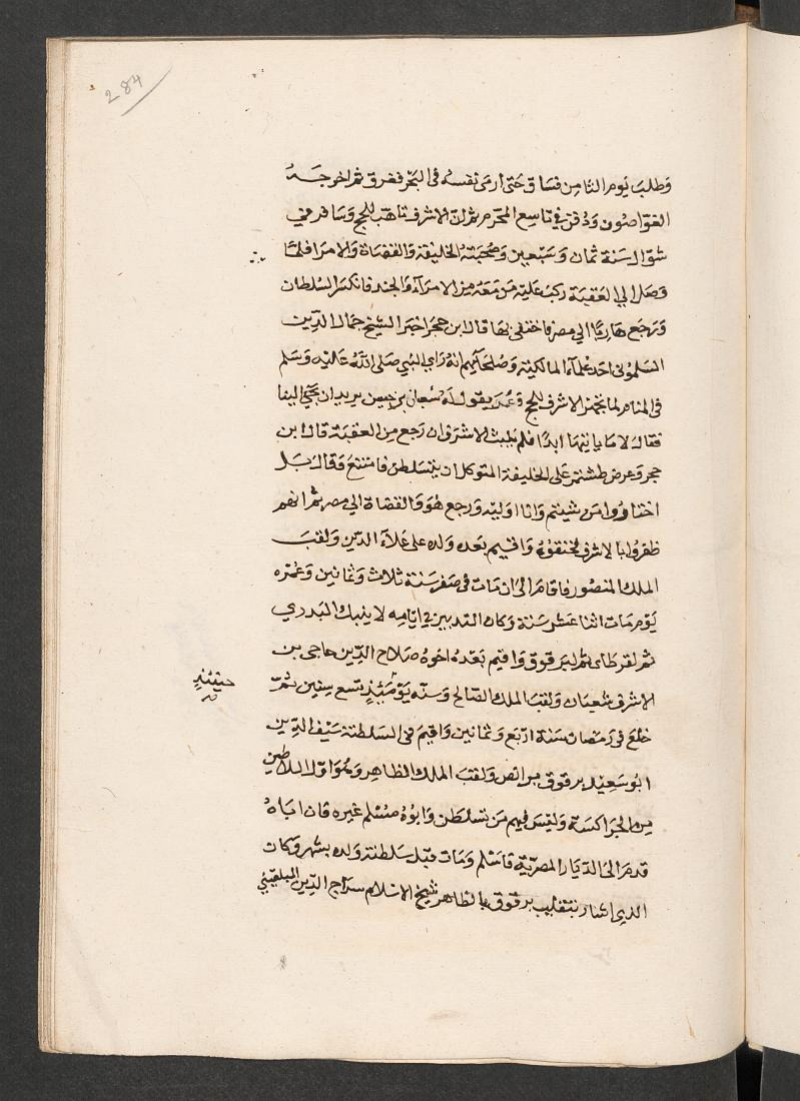 284
وطلب يوم الثامن فساق حتى ارمى نفسه في البحر فغرق ثم اخرجه
الغواصون ودفن في تاسع المحرم ثم ان الاشرف تاهب للحج وسافر في
شوال سنة ثمان وسبعين وصحبته الخليفة والقضاة والامرا فلما
وصل الي العقبة ركب عليه من معه من الامرآء والجند فانكسر السلطان
ورجع هاربًا الي مصر فاختفى بها قال ابن حجر اخبر الشيخ جمال الدين
السلموني احد علمآء المالكية وصلحآيهم انه راي النبي صلى الله عليه وسلم
في المنام لما تجهز الاشرف للحج وعمر يقول له شعبان بن حسين يريد ان يجي الينا
فقال لا ما ياتينا ابدًا فلم يلبث الاشرف ان رجع من العقبة قال ابن
حجر وعرض طشتمر على الخليفة المتوكل ان يتسلطن فامتنع وقال بل
اختاروا من شيتم وانا اوليه ورجع هو والقضاة الي مصر ثم انهم
ظفروا بالاشرف فخنقوه واقيم بعده ولده على علآء الدين ولقب
الملك المنصور فاقام الى ان مات في صفر سنة ثلاث وثمانين وعمره
يوم مات اثنا عشر سنة وكان التدبير في ايامه لاينبك البدري
ثم لقرطاى ثم لبرقوق واقيم بعده اخوه صلاح الدين حاجي بن
الاشرف شعبان ولقب الملك الصالح وسنه يوميذٍ تسع سنين ثم
حينئذٍ
خلع في رمضان سنة اربع وثمانين واقيم في السلطنة سيف الدين
ابو سعيد برقوق بن انص ولقب الملك الظاهر وهو اول السلاطين
من الجراكسة وليس فيهم من تسلطن وابوه مسلم غيره فان اباه
قدم الى الديار المصرية فاسلم ومات قبل سلطنة ولده بشهر وكان
الذي اشار بتقليب برقوق بالظاهر شيخ الاسلام سراج الدين البلقيني